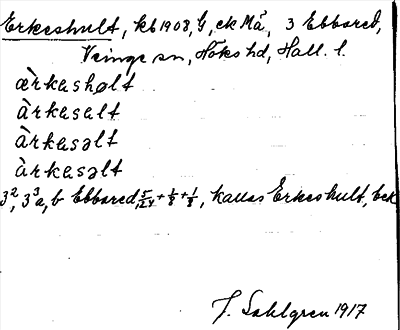 Erkeshult, kb 1908, G, ek Ma², 3 Ebbared,
Veinge sn, Höks hd, Hall. l.
ærkashølt
àrkasalt
àrkasəlt
àrkasəlt
3², 3³a, b Ebbared 5/24 + 1/8 + 1/8, kallas Erkeshult, bek
J. Sahlgren 1917